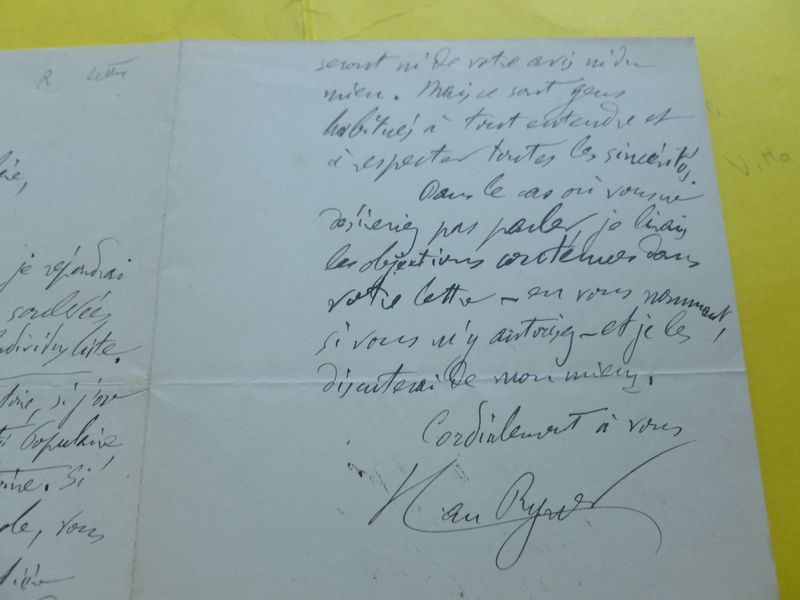 R Lettre
V. Ho
lie,
je répondrai
soulevées
individualiste.
toire, si j'ose
té Populaire
oine. Si
le, vous
seront ni de votre avis ni du
mien. Mais ce sont gens
habitués à tout entendre et
à respecter toutes les sincérités.
Dans le cas où vous ne
désireriez pas parler, je lirais
les objections contenues dans
votre lettre – en vous nommant,
si vous m'y autorisez – et je les
discuterai de mon mieux.
Cordialement à vous
Han Ryner